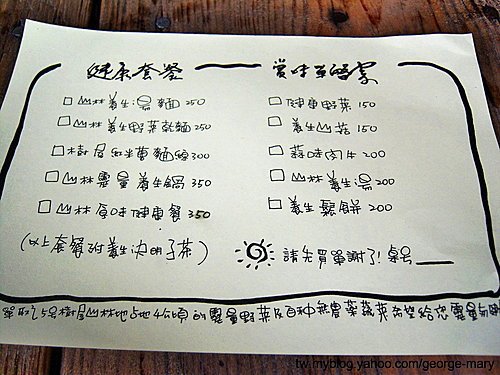 健康套餐
□ 山林養生湯麵 250
□ 山林養生野菜乾麵 250
□ 樹屋紅米東麵線 300
□ 山林靈量養生鍋 350
□ 山林原味健康餐 350
(以上套餐附養生決明子茶)
賞味
□ 健康野菜 150
□ 養生山菇 150
□ 蒜味肉片 200
□ 山林養生湯 200
□ 養生鬆餅 200
請先買單謝了! 桌號
樹屋山林地占地4公頃的靈量野菜及自種無農藥蔬菜希望給您靈量
tw.myblog.yahoo.com/george-mary